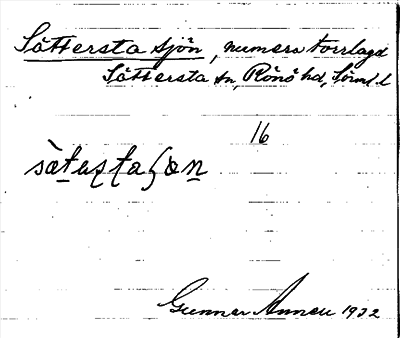 Sättersta sjön, numera torrlagd
Sättersta sn, Rönö hd, Sörml. l
16
Gunnar 1932